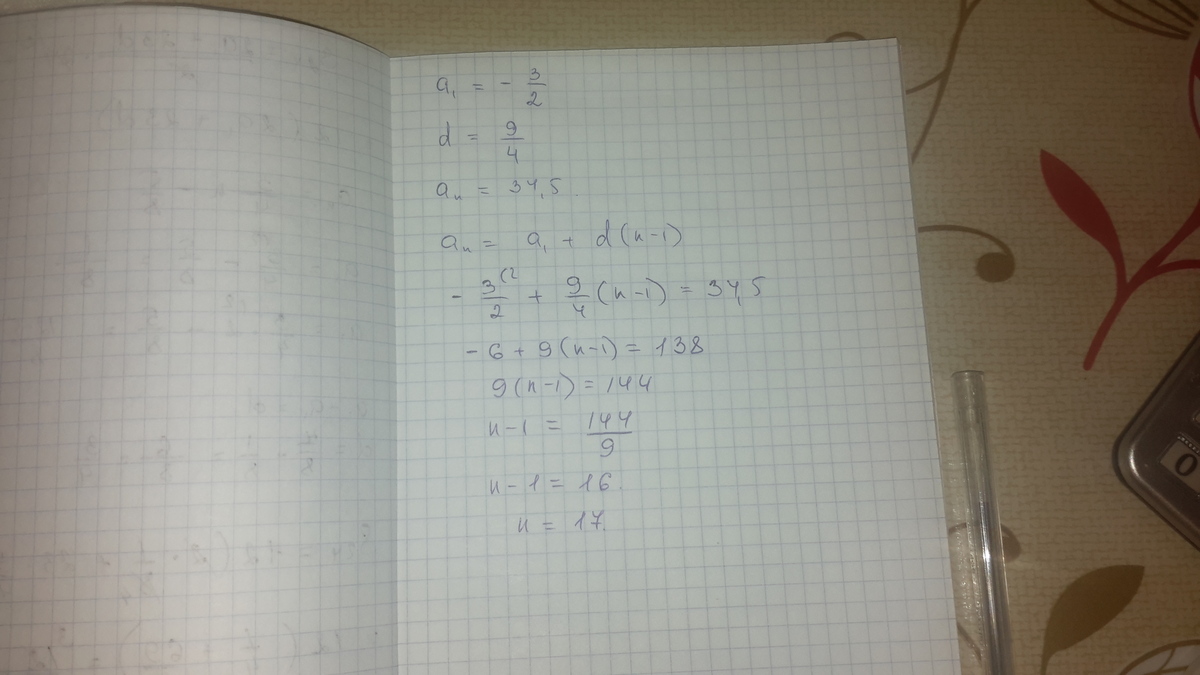 a₁ = - 3/2
d = 9/4
aₙ = 34,5.
aₙ = a₁ + d(n-1)
- 3/2 (2 + 9/4 (n-1) = 34,5
- 6 + 9(n-1) = 138
9(n-1) = 144
n-1 = 144/9
n-1 = 16.
n = 17.
0